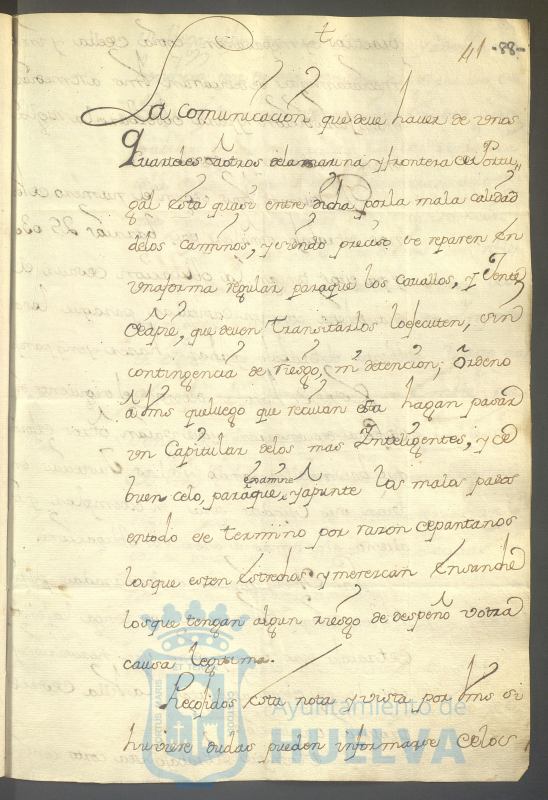 t
41 -88-
La comunicacion que deve haver de unos
Quarteles a otros dela marina y frontera de Portu-
gal esta quasi entre dicha por la mala calidad
delos caminos, y siendo preciso se reparen en
una forma regular para que los cavallos, y Gente
de a pie, que deven transitarlos lo ejecuten, sin
contingencia de riesgo, ni detencion; Ordeno
a Vms que luego que recivan esta hagan pasar
un Capitular delos mas Inteligentes, y de
buen celo, para que examine y apunte los malos pasos
en todo ese termino por razon de pantanos
los que esten estrechos y merezcan ensanche
los que tengan algun riesgo de despeño u otra
causa legitima.
Recojidos esta nota y vista por Vms si
huviere dudas pueden informarse de los
Ayuntamiento de
HUELVA